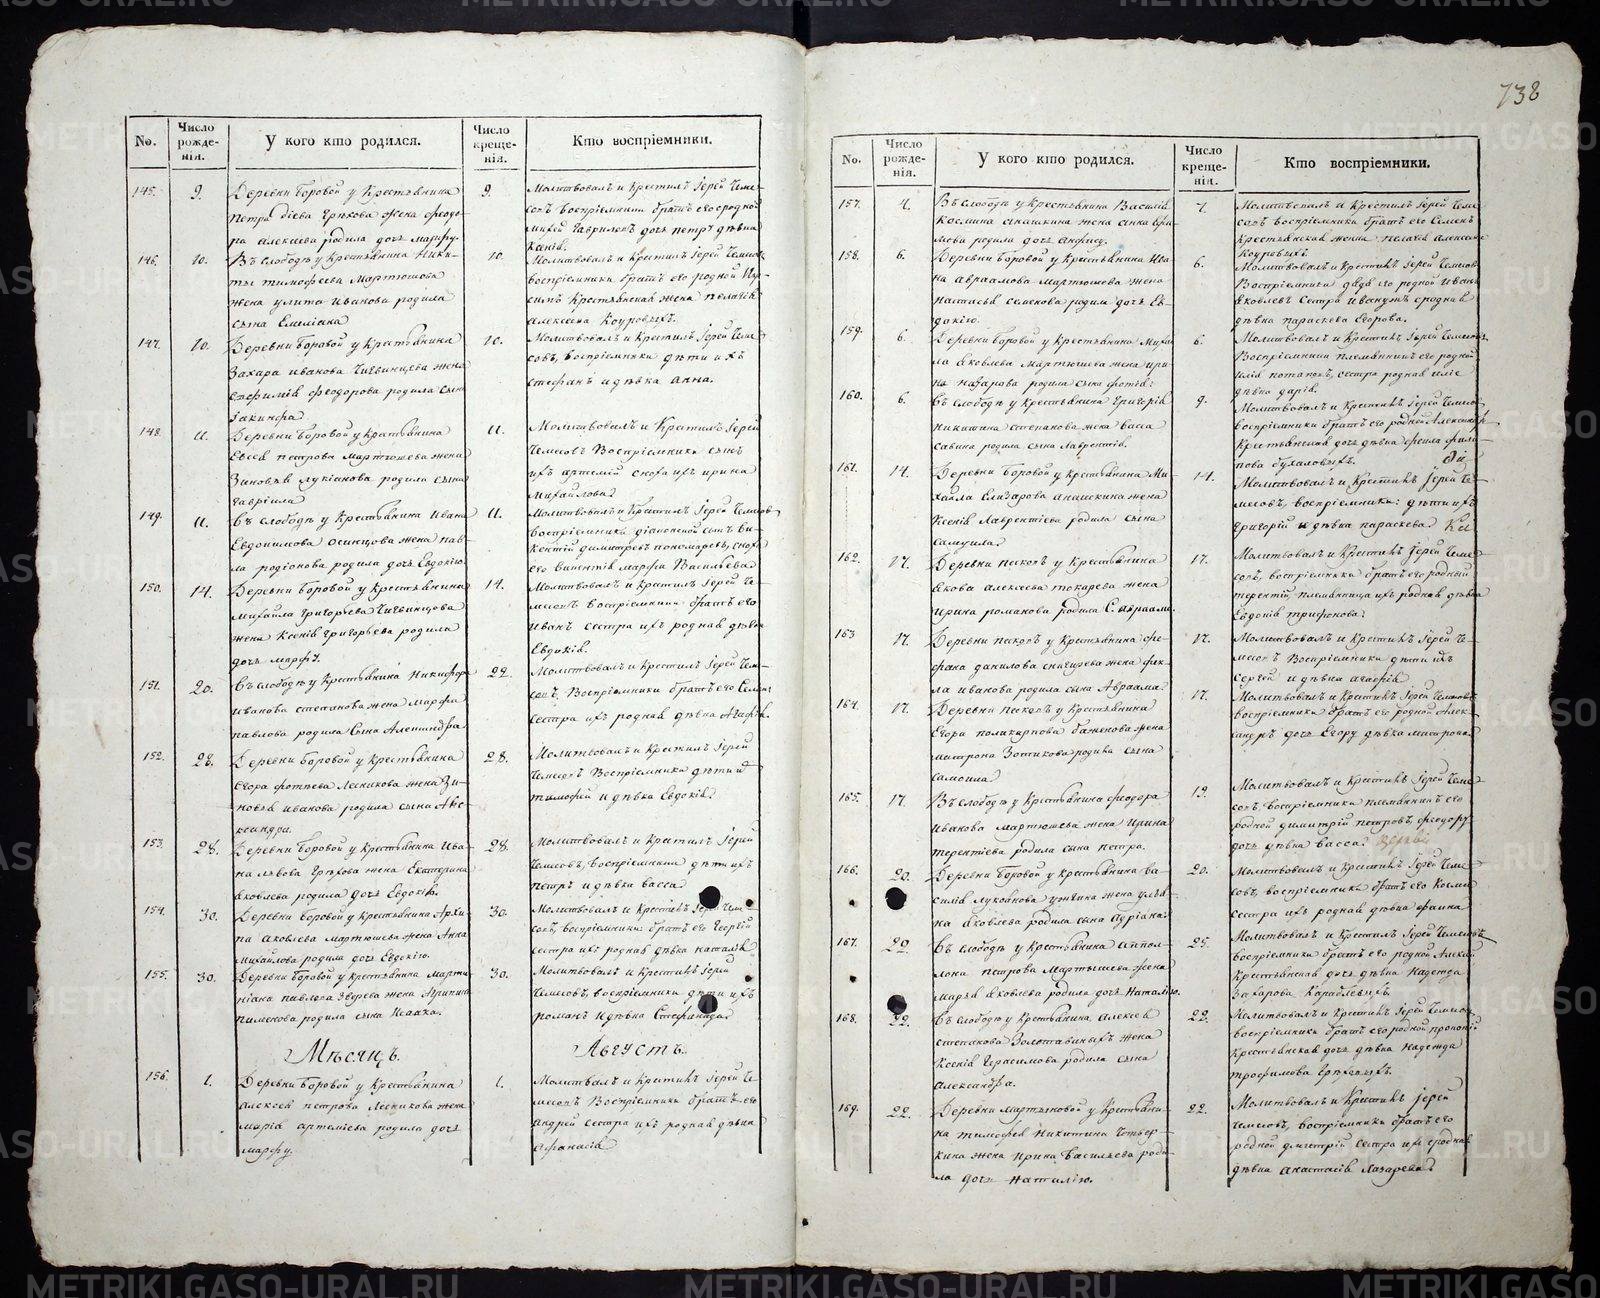 738
No.
Число рожде-нія.
У кого кто родился.
Число креще-нія.
Кто воспріемники.
145.
9.
Деревни боровой у Крестьянина
Петра
жена феодо-
ра алексеева родила дочь марфу.
9.
Молитвовалъ и Крестилъ Іерей Чеме-
совъ воспріемники братъ его сродной
дочь петръ дѣвка
146.
10.
Въ слободѣ у Крестьянина Ники-
ты тимофеева Мартюшова
жена улита иванова родила
сына Емиліана
10.
Молитвовалъ и крестилъ Іерей Чемесовъ
воспріемники братъ его родной
Крестьянская жена пелагея
алексеева Коуровыхъ.
147.
10.
Деревни боровой у Крестьянина
Захара иванова Чигвинцева жена
евфимія феодорова родила сына
Іакинфа
10.
Молитвовалъ и Крестилъ Іерей Чеме-
совъ, воспріемники дѣти ихъ
стефанъ и дѣвка анна.
148.
11.
Деревни боровой у Крестьянина
Евсея петрова Мартюшева жена
Зиновья лукіанова родила сына
гавріила
11.
Молитвовалъ и Крестилъ Іерей
Чемесовъ Воспріемники сынъ
ихъ артемій сноха ихъ ирина
Михайлова
149.
11.
Въ слободѣ у Крестьянина Ивана
Евдокимова осинцова жена пав-
ла родіонова родила дочь Евдокію.
11.
Молитвовалъ и Крестилъ Іерей Чемесовъ
воспріемники діаконской сынъ Ви-
кентій димитріевъ пономаревъ, сноха
его викентія марфа Васильева
150.
14.
Деревни боровой у крестьянина
михайла григорьева Чигвинцова
жена Ксенія григорьева родила
дочь марфу.
14.
Молитвовалъ и Крестилъ Іерей Че-
месовъ воспріемники братъ его
иванъ сестра ихъ родная дѣвка
Евдокія.
151.
20.
Въ слободѣ у Крестьянина Никифора
иванова степанова жена марфа
павлова родила сына Александра
22.
Молитвовалъ и Крестилъ Іерей Чеме-
совъ, воспріемники братъ его Семенъ
сестра ихъ родная дѣвка Агафія.
152.
28.
Деревни боровой у крестьянина
Егора фотіева Лесникова жена Зи-
новья иванова родила сына Але-
ксандра.
28.
Молитвовалъ и Крестилъ Іерей
Чемесовъ Воспріемники дѣти
тимофей и дѣвка Евдокія.
153.
28.
Деревни боровой у Крестьянина Ива-
на львова жена Екатерина
яковлева родила дочь Евдокію.
28.
Молитвовалъ и Крестилъ Іерей
Чемесовъ, воспріемники дѣти ихъ
петръ и дѣвка васса
154.
30.
Деревни боровой у крестьянина Архи-
па яковлева мартюшева жена Анна
михайлова родила дочь Евдокію.
30.
Молитвовалъ и Крестилъ Іерей Чеме-
совъ, воспріемники братъ его Георгій
сестра ихъ родная дѣвка наталья
155.
30.
Деревни боровой у крестьянина Марти-
ніана павлова Зверева жена Агрипина
пименова родила сына Исаака.
30.
Молитвовалъ и Крестилъ Іерей
Чемесовъ, воспріемники дѣти ихъ
романъ и дѣвка Стефанида
Мѣсяцъ.
Августъ.
156.
1.
Деревни боровой у Крестьянина
алексея петрова Лесникова жена
марія артеміева родила дочь
марфу.
1.
Молитвалъ и Крестилъ Іерей Че-
месовъ Воспріемники братъ его
андрей сестра ихъ родная дѣвка
афанасія
No.
Число рожде-нія.
У кого кто родился.
Число креще-нія.
Кто воспріемники.
157.
4.
Въ слободѣ у крестьянина Василія
Космина жена
родила дочь анфису.
Молитвовалъ и Крестилъ Іерей Чеме-
совъ воспріемники братъ его Семенъ
Крестьянская жена пелагея алексеева
Коуровыхъ.
158.
6.
Деревни боровой у крестьянина Ива-
на авраамова Мартюшова жена
настасья семенова родила дочь Ев-
докію.
6.
Молитвовалъ и Крестилъ Іерей Чемесовъ
Воспріемники дядя его родной иванъ
яковлевъ сестра сродная
дѣвка параскева егорова.
159.
6.
Деревни боровой у крестьянина Миха-
ла яковлева мартюшева жена ири-
на назарова родила сына фотія.
6.
Молитвовалъ и Крестилъ Іерей Чемесовъ
Воспріемники племянникъ его родной
илія потаповъ, сестра родная иліе
дѣвка дарія.
160.
6.
Въ слободѣ у крестьянина григорія
никитина степанова жена васса
савина родила сына лаврентія.
9.
Молитвовалъ и Крестилъ Іерей Чемесовъ
воспріемники братъ его родной Александръ
Крестьянская дочь дѣвка фекла фили-
пова
161.
14.
Деревни боровой у крестьянина Ми-
хайла Елизарова жена
Ксенія лаврентіева родила сына
самуила.
14.
Молитвовалъ и Крестилъ Іерей Че-
месовъ, воспріемники: дѣти ихъ
григорій и дѣвка параскева.
162.
17.
Деревни песковъ у крестьянина
якова алексеева токарева жена
ирина романова родила С. авраама.
17.
Молитвовалъ и Крестилъ Іерей Чеме-
совъ, воспріемники братъ его родный
терентій племянница ихъ родная дѣвка
Евдокія трифонова.
163
17.
Деревни песковъ у крестьянина сте-
фана данилова снигирева жена фек-
ла иванова родила сына Авраама.
17.
Молитвовалъ и Крестилъ Іерей Че-
месовъ Воспріемники дѣти ихъ
Сергей и дѣвка агафія
164.
17.
Деревни песковъ у крестьянина
Егора поликарпова баженова жена
матрона Зотикова родила сына
самоила
17.
Молитвовалъ и Крестилъ Іерей Чемесовъ
воспріемники братъ его родной Алек-
сандръ дочь Егору дѣвка матрона
165.
17.
Въ слободѣ у Крестьянина феодора
иванова мартюшева жена ирина
терентіева родила сына петра.
19.
Молитвовалъ и Крестилъ Іерей Чеме-
совъ, воспріемники племянникъ его
родной димитрій петровъ, феодору
дочь дѣвка васса.
166.
20.
Деревни боровой у крестьянина ва-
силія лукоянова жена улья-
на яковлева родила сына адріана.
20.
Молитвовалъ и Крестилъ Іерей Чеме-
совъ, воспріемники братъ его Косма
сестра ихъ родная дѣвка фаина
167.
22.
Въ слободѣ у крестьянина аппол-
лона петрова Мартышева жена
марья яковлева родила дочь Наталію.
25.
Молитвовалъ и Крестилъ Іерей Чемесовъ
воспріемники братъ его родной Алексей
Крестьянская дочь дѣвка Надежда
Захарова
168.
22.
Въ слободѣ у крестьянина Алексея
степанова Золотавиныхъ жена
Ксенія Герасимова родила сына
александра.
22.
Молитвовалъ и Крестилъ Іерей Чемесовъ
воспріемники братъ его родной прокопій
Крестьянская дочь дѣвка Надежда
трофимова
169.
22.
Деревни мартьяновой у Крестьяни-
на тимофея никитина Четвер-
кина жена ирина васильева роди-
ла дочь наталію.
22.
Молитвовалъ и Крестилъ Іерей
Чемесовъ, воспріемники братъ его
родной дмитрій сестра ихъ сродная
дѣвка Анастасія Лазарева
METRIKI.GASO-URAL.RU